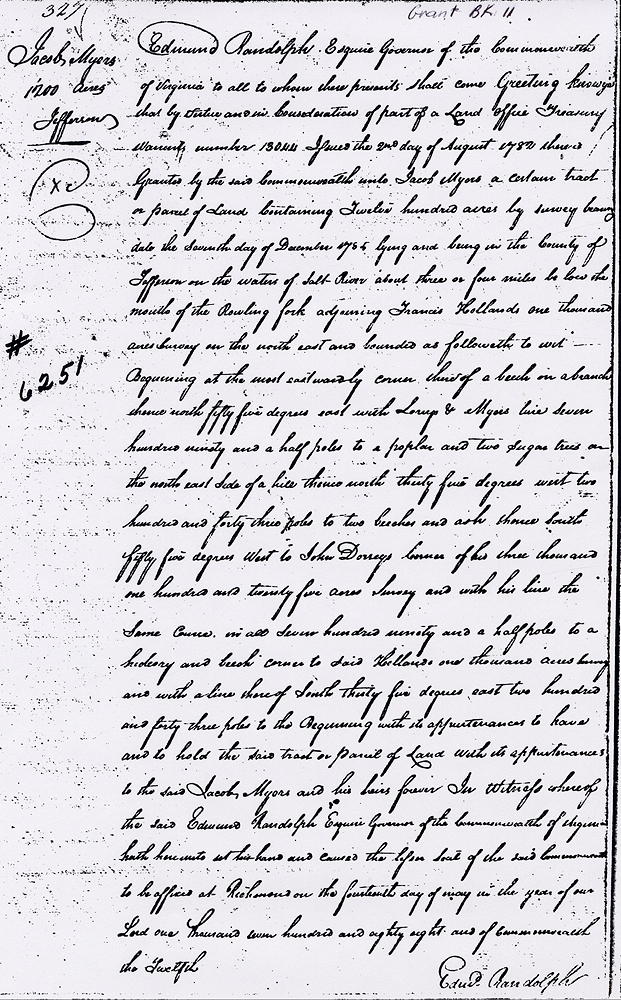 327
Grant Bk 11
Jacob Myers
1200 acres
Jefferson
# 6251
Edmund Randolph Esquire Governor of the Commonwealth
of Virginia to all to whom these presents shall come Greeting know ye
that by virtue and in Consideration of part of a Land office Treasury
Warrant number 13044 Issued the 2nd day of August 1782 there is
Granted by the said Commonwealth unto Jacob Myers a certain tract
or parcel of Land Containing Twelve hundred acres by survey bearing
date the Seventh day of December 1784 lying and being in the County of
Jefferson on the waters of Salt River about three or four miles be low the
mouth of the Rowling fork adjoining Francis Hollands one thousand
acres survey on the north east and bounded as followeth to wit
Beginning at the most eastwardly corner thereof a beech on a branch
thence north fifty five degrees east with & Myers line seven
hundred ninety and a half poles to a poplar and two Sugar trees on
the north east side of a hill thence north thirty five degrees west two
hundred and forty three poles to two beeches and ash thence South
fifty five degrees West to John Dorseys corner of his three thousand
one hundred and twenty five acres Survey and with his line the
Same Course in all Seven hundred ninety and a half poles to a
hickory and beech corner to said Hollands one thousand acres survey
and with a line thereof South thirty five degrees east two hundred
and forty three poles to the Beginning with its appurtenances to have
and to hold the said tract or parcel of Land with its appurtenances
to the said Jacob Myers and his heirs forever In Witness whereof
the said Edmund Randolph Esquire Governor of the Commonwealth of Virginia
hath hereunto set his hand and caused the lesser Seal of the said Commonwealth
to be affixed at Richmond on the fourteenth day of may in the year of our
Lord one Thousand seven hundred and eighty eight and of Commonwealth
the Twelfth
Edmd. Randolph